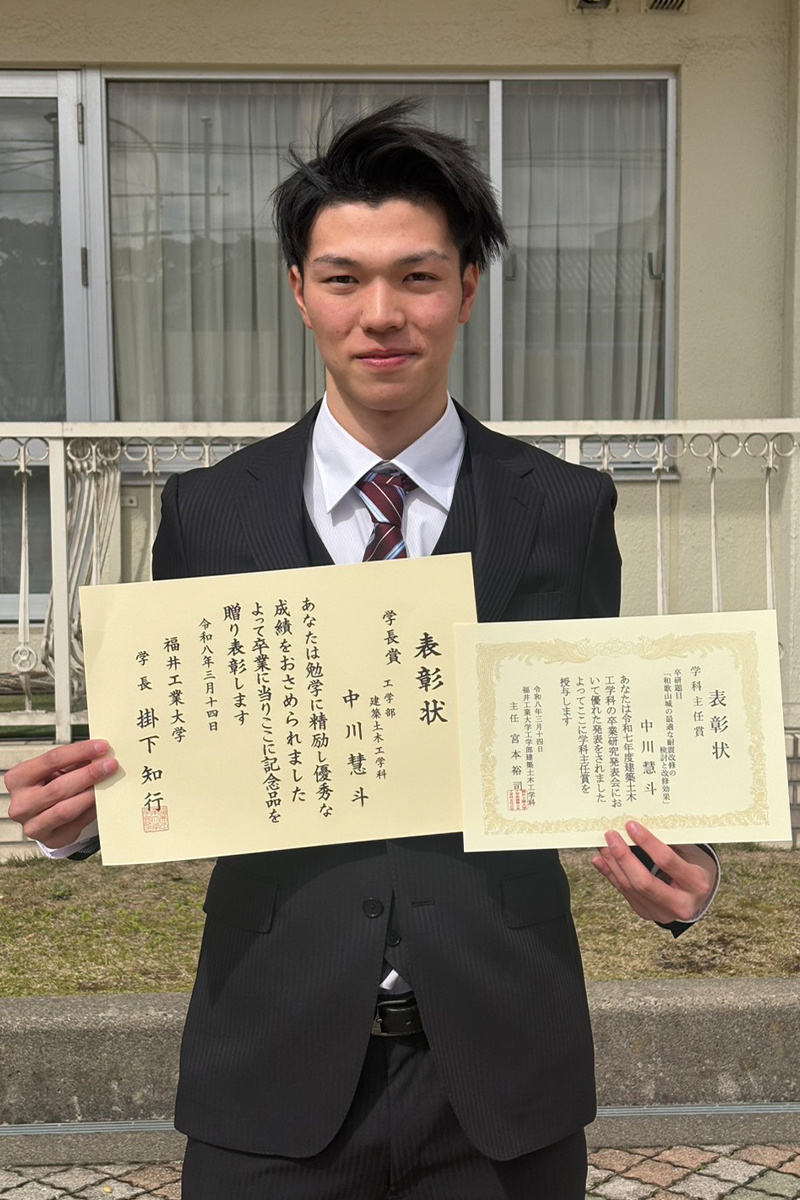 表彰状
学長賞 工学部
建築土木工学科
中川慧斗
あなたは勉学に精励し優秀な
成績をおさめられました
よって卒業に当りここに記念品を
贈り表彰します
令和八年三月十四日
福井工業大学
学長 掛下知行
表彰状
学科主任賞
卒研題目
「和歌山城の最適な耐震改修の
検討と改修効果」
中川慧斗
あなたは令和七年度建築土木
工学科の卒業研究発表会にお
いて優れた発表をされました
よってここに学科主任賞を
授与します
令和八年三月十四日
福井工業大学工学部建築土木工学科
主任 宮本裕司